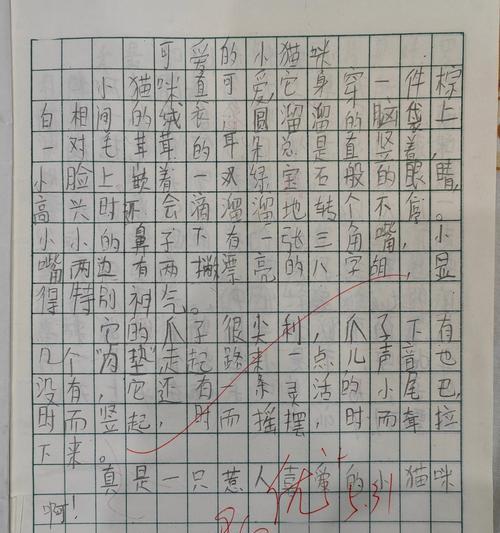 可爱的小猫咪
小猫咪真可爱,它身穿一件棕
白相间的绒衣,圆溜溜的脑袋上
一对毛茸茸的耳朵总是直竖着,
小脸上嵌着一双绿宝石般的眼睛,
高兴时还会滴溜溜地转个不停。
小小的鼻子下有一张三角嘴,小
嘴两边有两撇漂亮的八字胡,显
得特别神气。
它的爪子很尖利,爪子下有
几个“肉垫”,走起路来一点儿声音也
没有,它还有一条灵活的小尾巴,
时而竖起,时而摇摆,时而耷拉
下来。
真是一只惹人喜爱的小猫咪
啊!
优+
5.31